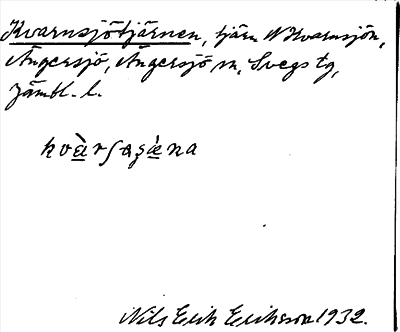 Kvarnsjötjärnen, tjärn N Kvarnsjön,
Ängersjö, Ängersjö sn, Svegs tg,
Jämtl. l.
Nils Erik Eriksson 1932.